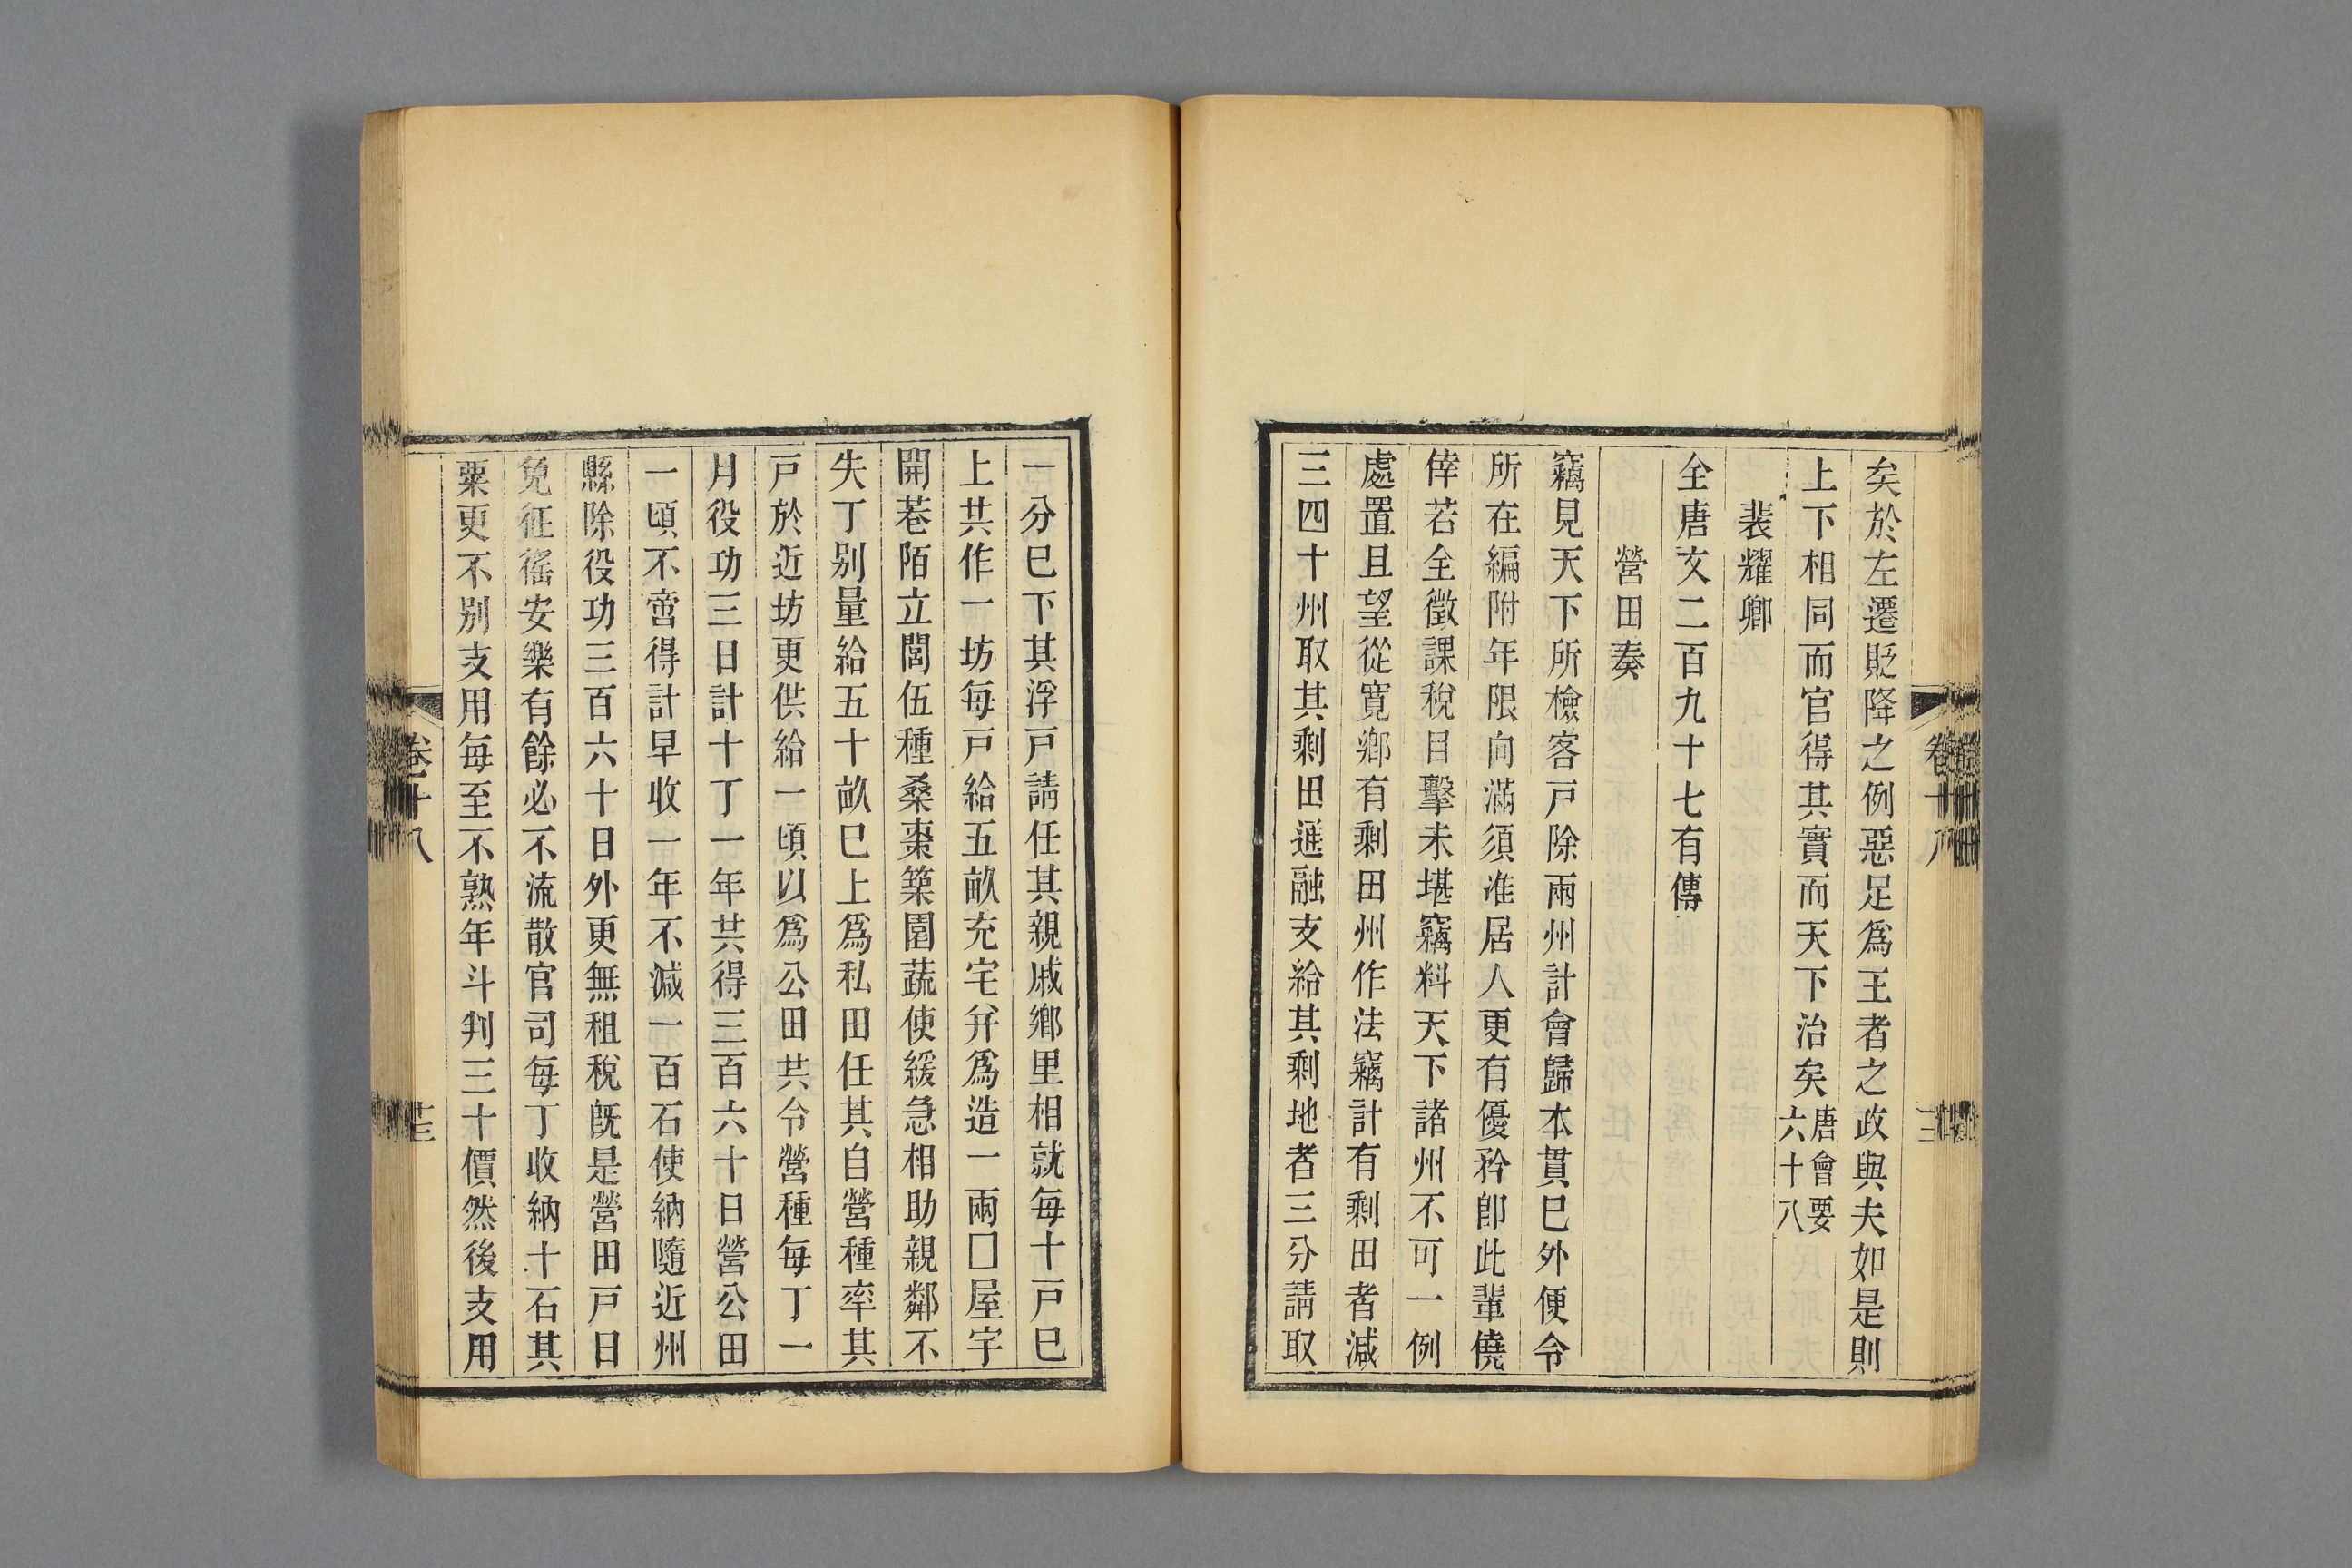 矣於左遷貶降之例惡足爲王者之政與夫如是則
上下相同而官得其實而天下治矣唐會要六十八
裴耀卿
全唐文二百九十七有傳
營田奏
竊見天下所檢客戸除兩州計會歸本貫巳外便令
所在編附年限向滿須准居人更有優矜卽此輩僥
倖若全徵課稅目擊未堪竊料天下諸州不可一例
處置且望從寬鄉有剩田州作法竊計有剩田者減
三四十州取其剩田通融支給其剩地者三分請取
一分巳下其浮戸請任其親戚鄉里相就每十戸巳
上共作一坊每戸給五畝充宅并爲造一兩囗屋宇
開巷陌立閭伍種桑棗築園蔬使緩急相助親鄰不
失丁别量給五十畝巳上爲私田任其自營種率其
戸於近坊更供給一頃以爲公田共令營種每丁一
月役功三日計十丁一年共得三百六十日營公田
一頃不啻得計早收一年不減一百石使納隨近州
縣除役功三百六十日外更無租稅旣是營田戸日
免征徭安樂有餘必不流散官司每丁收納十石其
粟更不别支用每至不熟年斗判三十價然後支用
卷十八